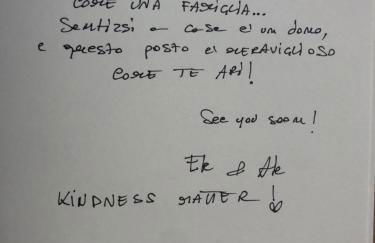 COME UNA FAMIGLIA...
Sentirsi a casa è un dono,
e questo posto è MERAVIGLIOSO
COME TE ARI!
See you soon!
Ele & Ale
KINDNESS MATTER!